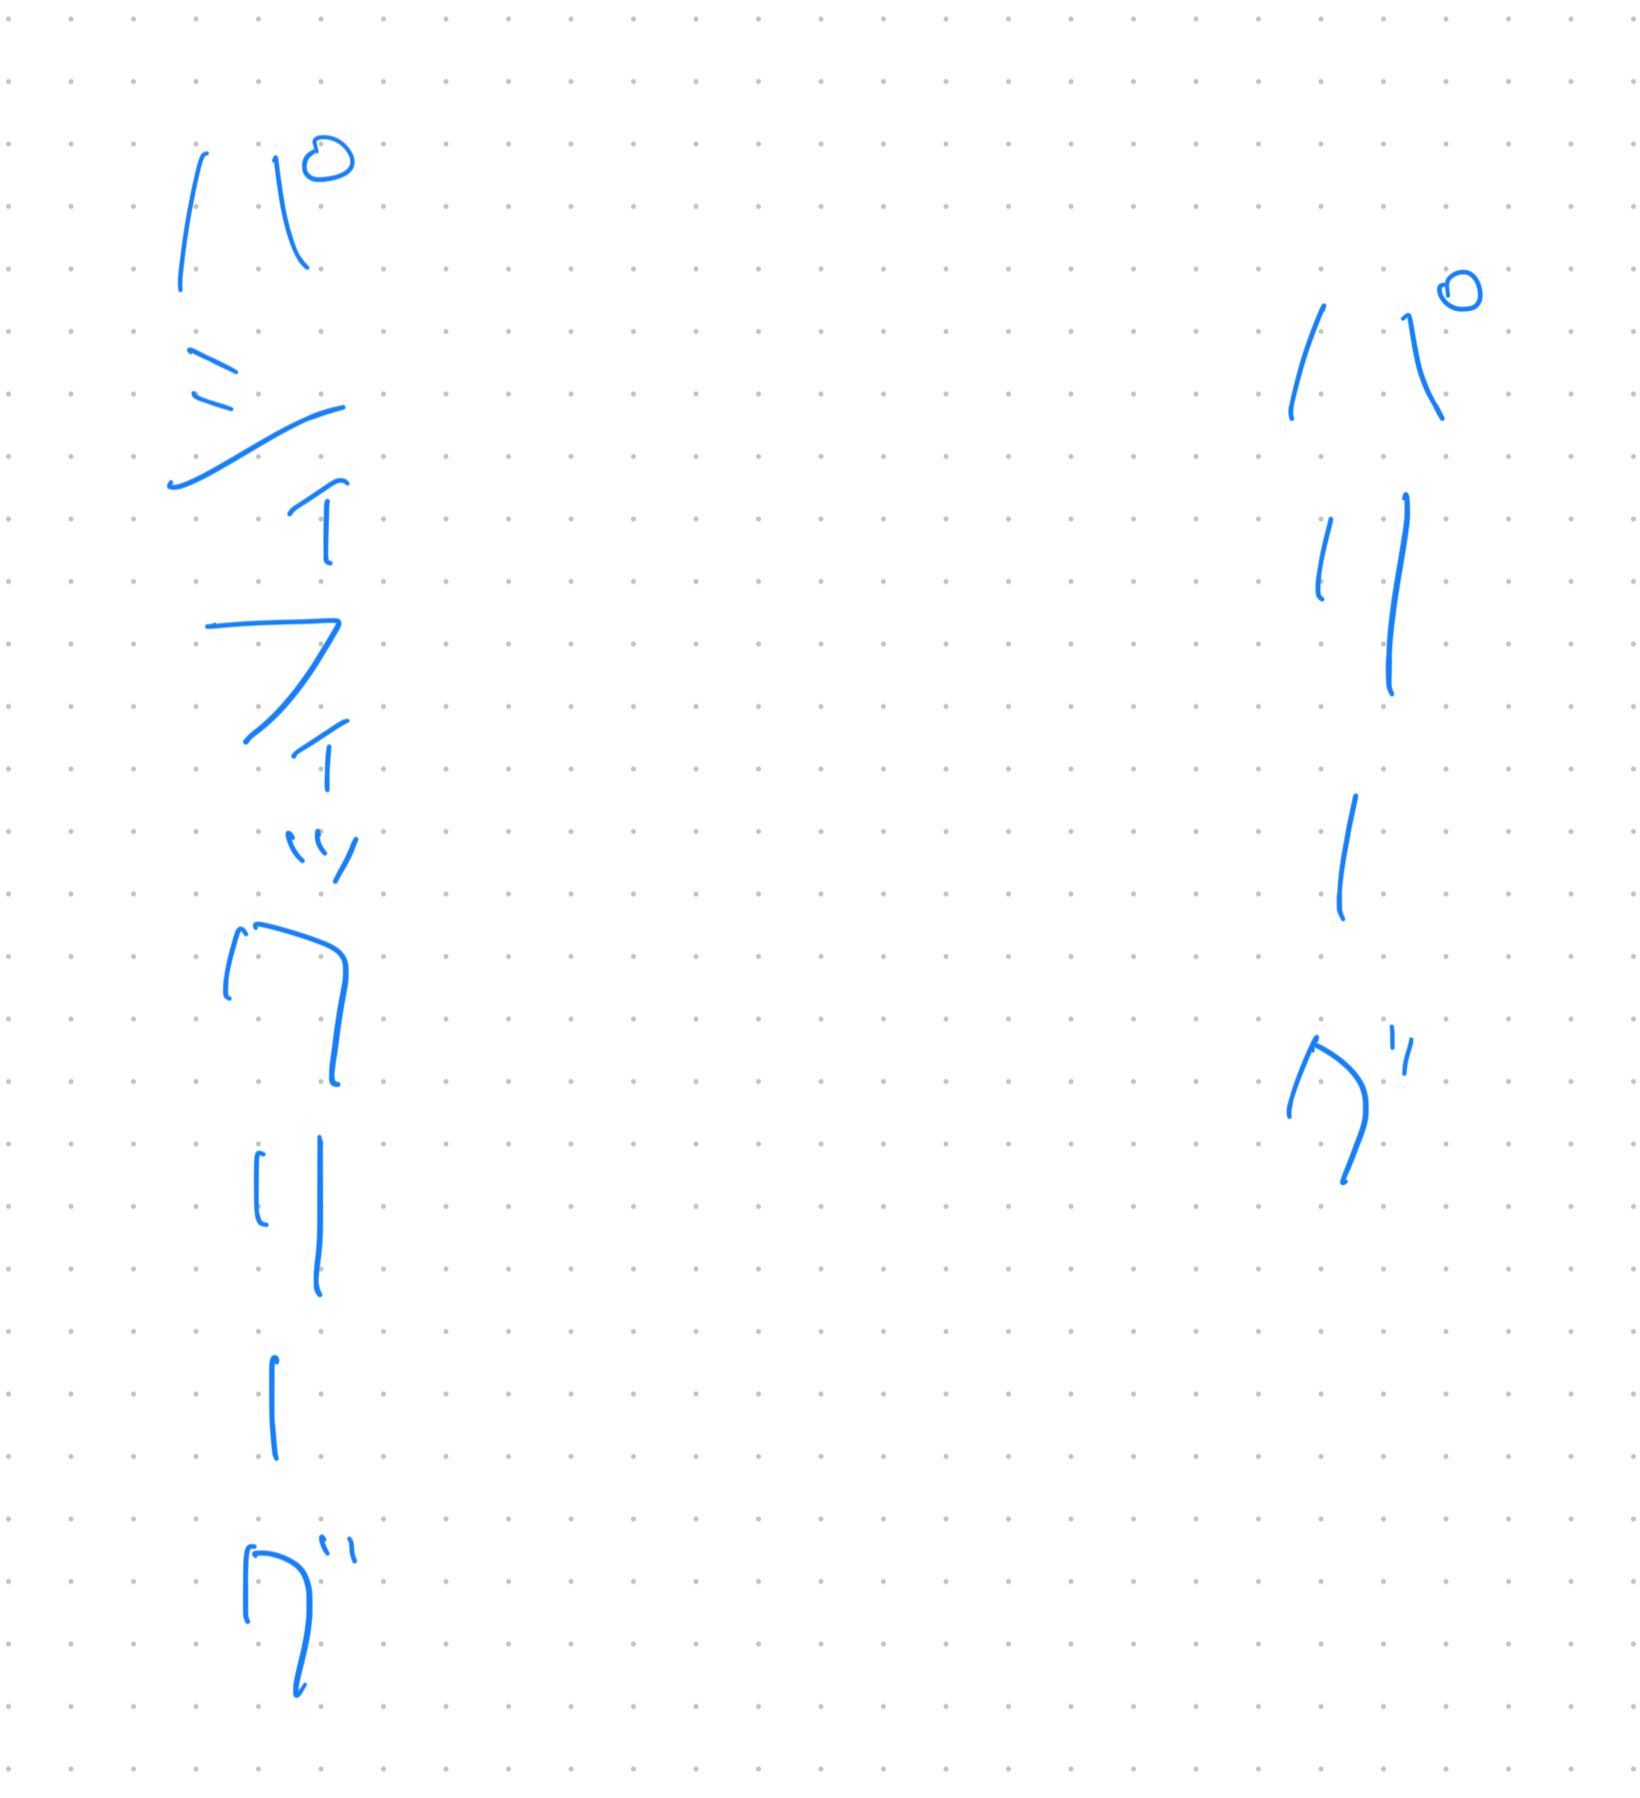 パリーグ
パシィフィックリーグ